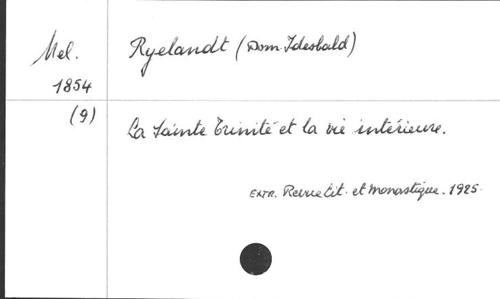 Mel. Ryelandt (Dom Idesbald)
1854
(9) La Sainte Trinité et la vie intérieure.
Extr. Revue Lit. et Monastique. 1925.